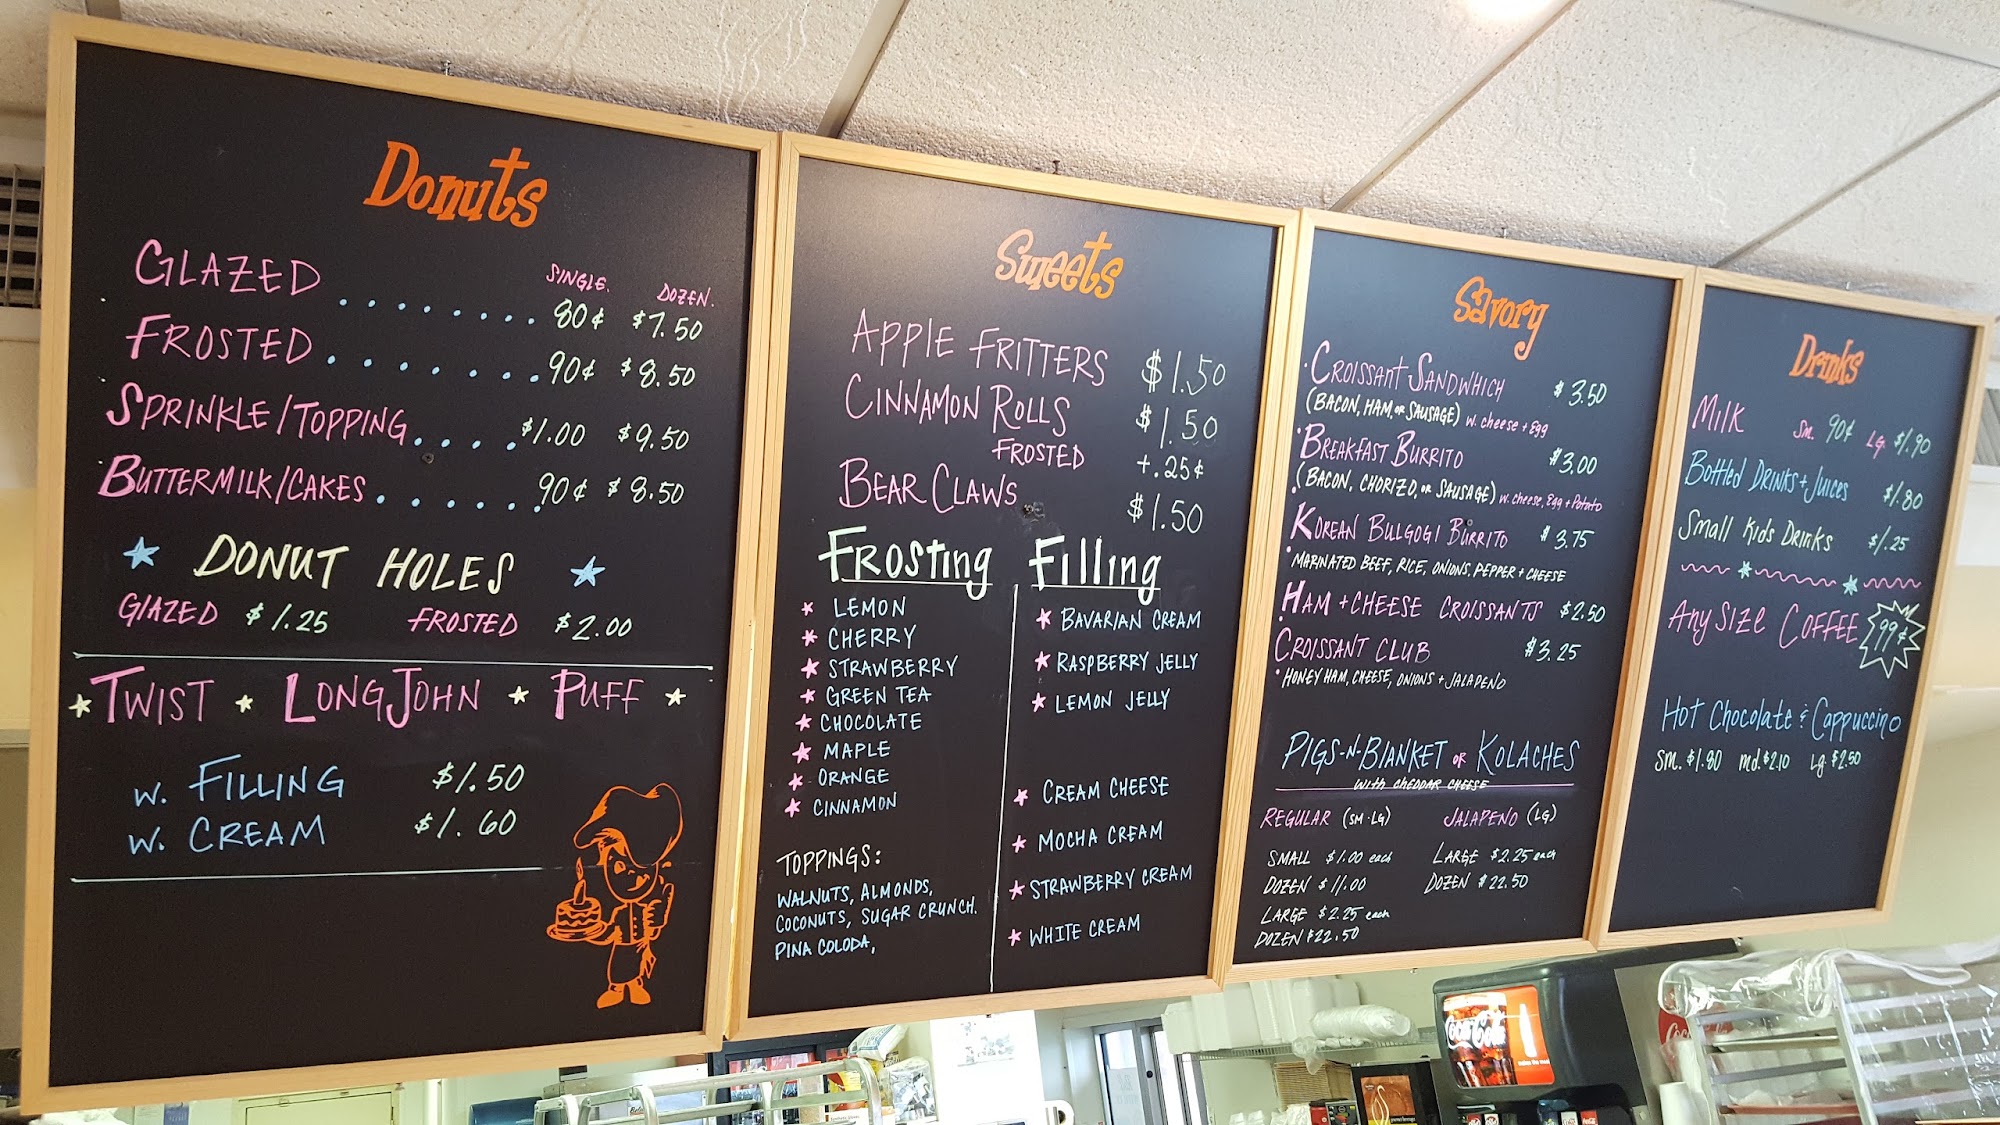 Donuts
SINGLE. DOZEN.
GLAZED ........ 80¢ $7.50
FROSTED ....... 90¢ $8.50
SPRINKLE/TOPPING .... $1.00 $9.50
BUTTERMILK/CAKES ...... 90¢ $8.50
DONUT HOLES
GLAZED $1.25 FROSTED $2.00
TWIST LONG JOHN PUFF
W. FILLING $1.50
W. CREAM $1.60
Sweets
APPLE FRITTERS $1.50
CINNAMON ROLLS $1.50
FROSTED +.25¢
BEAR CLAWS $1.50
Frosting
LEMON
CHERRY
STRAWBERRY
GREEN TEA
CHOCOLATE
MAPLE
ORANGE
CINNAMON
TOPPINGS:
WALNUTS, ALMONDS,
COCONUTS, SUGAR CRUNCH.
PINA COLODA,
Filling
BAVARIAN CREAM
RASPBERRY JELLY
LEMON JELLY
CREAM CHEESE
MOCHA CREAM
STRAWBERRY CREAM
WHITE CREAM
Savory
CROISSANT SANDWHICH $3.50
(BACON, HAM, OR SAUSAGE) w. cheese + Egg
BREAKFAST BURRITO $3.00
(BACON, CHORIZO, OR SAUSAGE) w. cheese, Egg + Potato
KOREAN BULGOGI BURRITO $3.75
MARINATED BEEF, RICE, ONIONS, PEPPER + CHEESE
HAM + CHEESE CROISSANTS $2.50
CROISSANT CLUB $3.25
HONEY HAM, CHEESE, ONIONS + JALAPENO
PIGS-N-BLANKET OR KOLACHES
with CHEDDAR CHEESE
REGULAR (SM·LG) JALAPENO (LG)
SMALL $1.00 each LARGE $2.25 each
DOZEN $11.00 DOZEN $22.50
LARGE $2.25 each
DOZEN $22.50
Drinks
MILK Sm. 90¢ LG. $1.90
Bottled DRINKS + Juices $1.80
Small Kids Drinks $1.25
Any SIZE COFFEE 99¢
Hot Chocolate & Cappuccino
Sm. $1.80 md. $2.10 Lg. $2.50
Coca-Cola